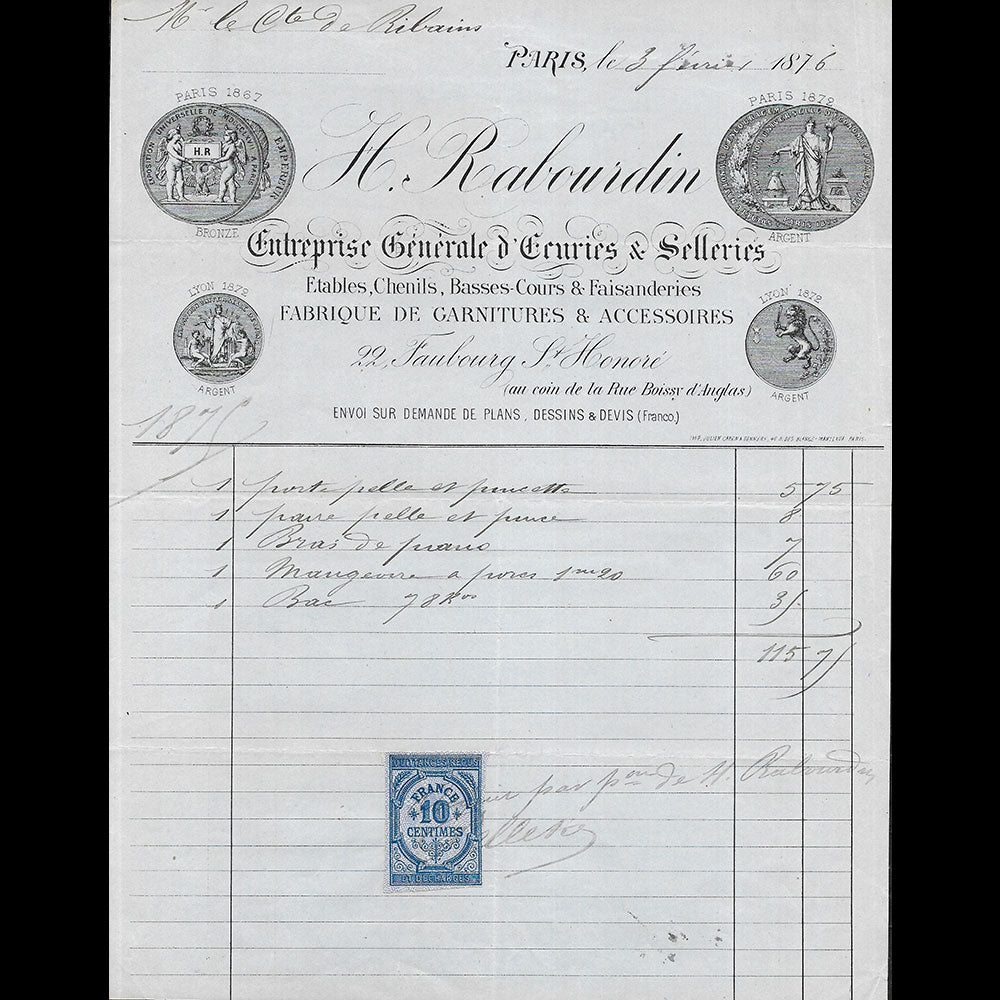 Mr le Cte de Ribains
PARIS, le 3 février 1876
PARIS 1867
H.R
EMPEREUR
BRONZE
PARIS 1872
ARGENT
H. Rabourdin
Entreprise Générale d'Ecuries & Selleries
Etables, Chenils, Basses-Cours & Faisanderies
FABRIQUE DE GARNITURES & ACCESSOIRES
LYON 1872
ARGENT
LYON 1872
ARGENT
22, Faubourg St Honoré
(au coin de la Rue Boissy d'Anglas)
ENVOI SUR DEMANDE DE PLANS, DESSINS & DEVIS (Franco.)
1875
1 porte pelle et pincette 5 75
1 paire pelle et pince 8
1 Bras de piano 7
1 Mangeoire a porcs 1m20 60
1 Bac 78Kos 35
115 75
par pon de H. Rabourdin
QUITTANCES REÇUS
FRANCE
10
CENTIMES
ET DÉCHARGES